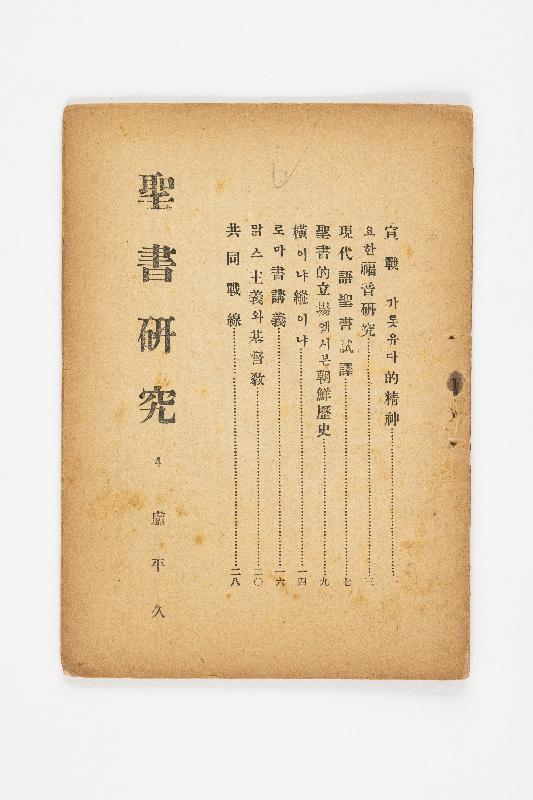 宣戰 가룟유다的精神
요한福音硏究 三
現代語聖書試譯 七
聖書的立場에서본朝鮮歷史 九
橫이냐縱이냐 一四
로마書講義 一六
맑스主義와基督敎 二〇
共同戰線 二八
聖書硏究 4 盧平久